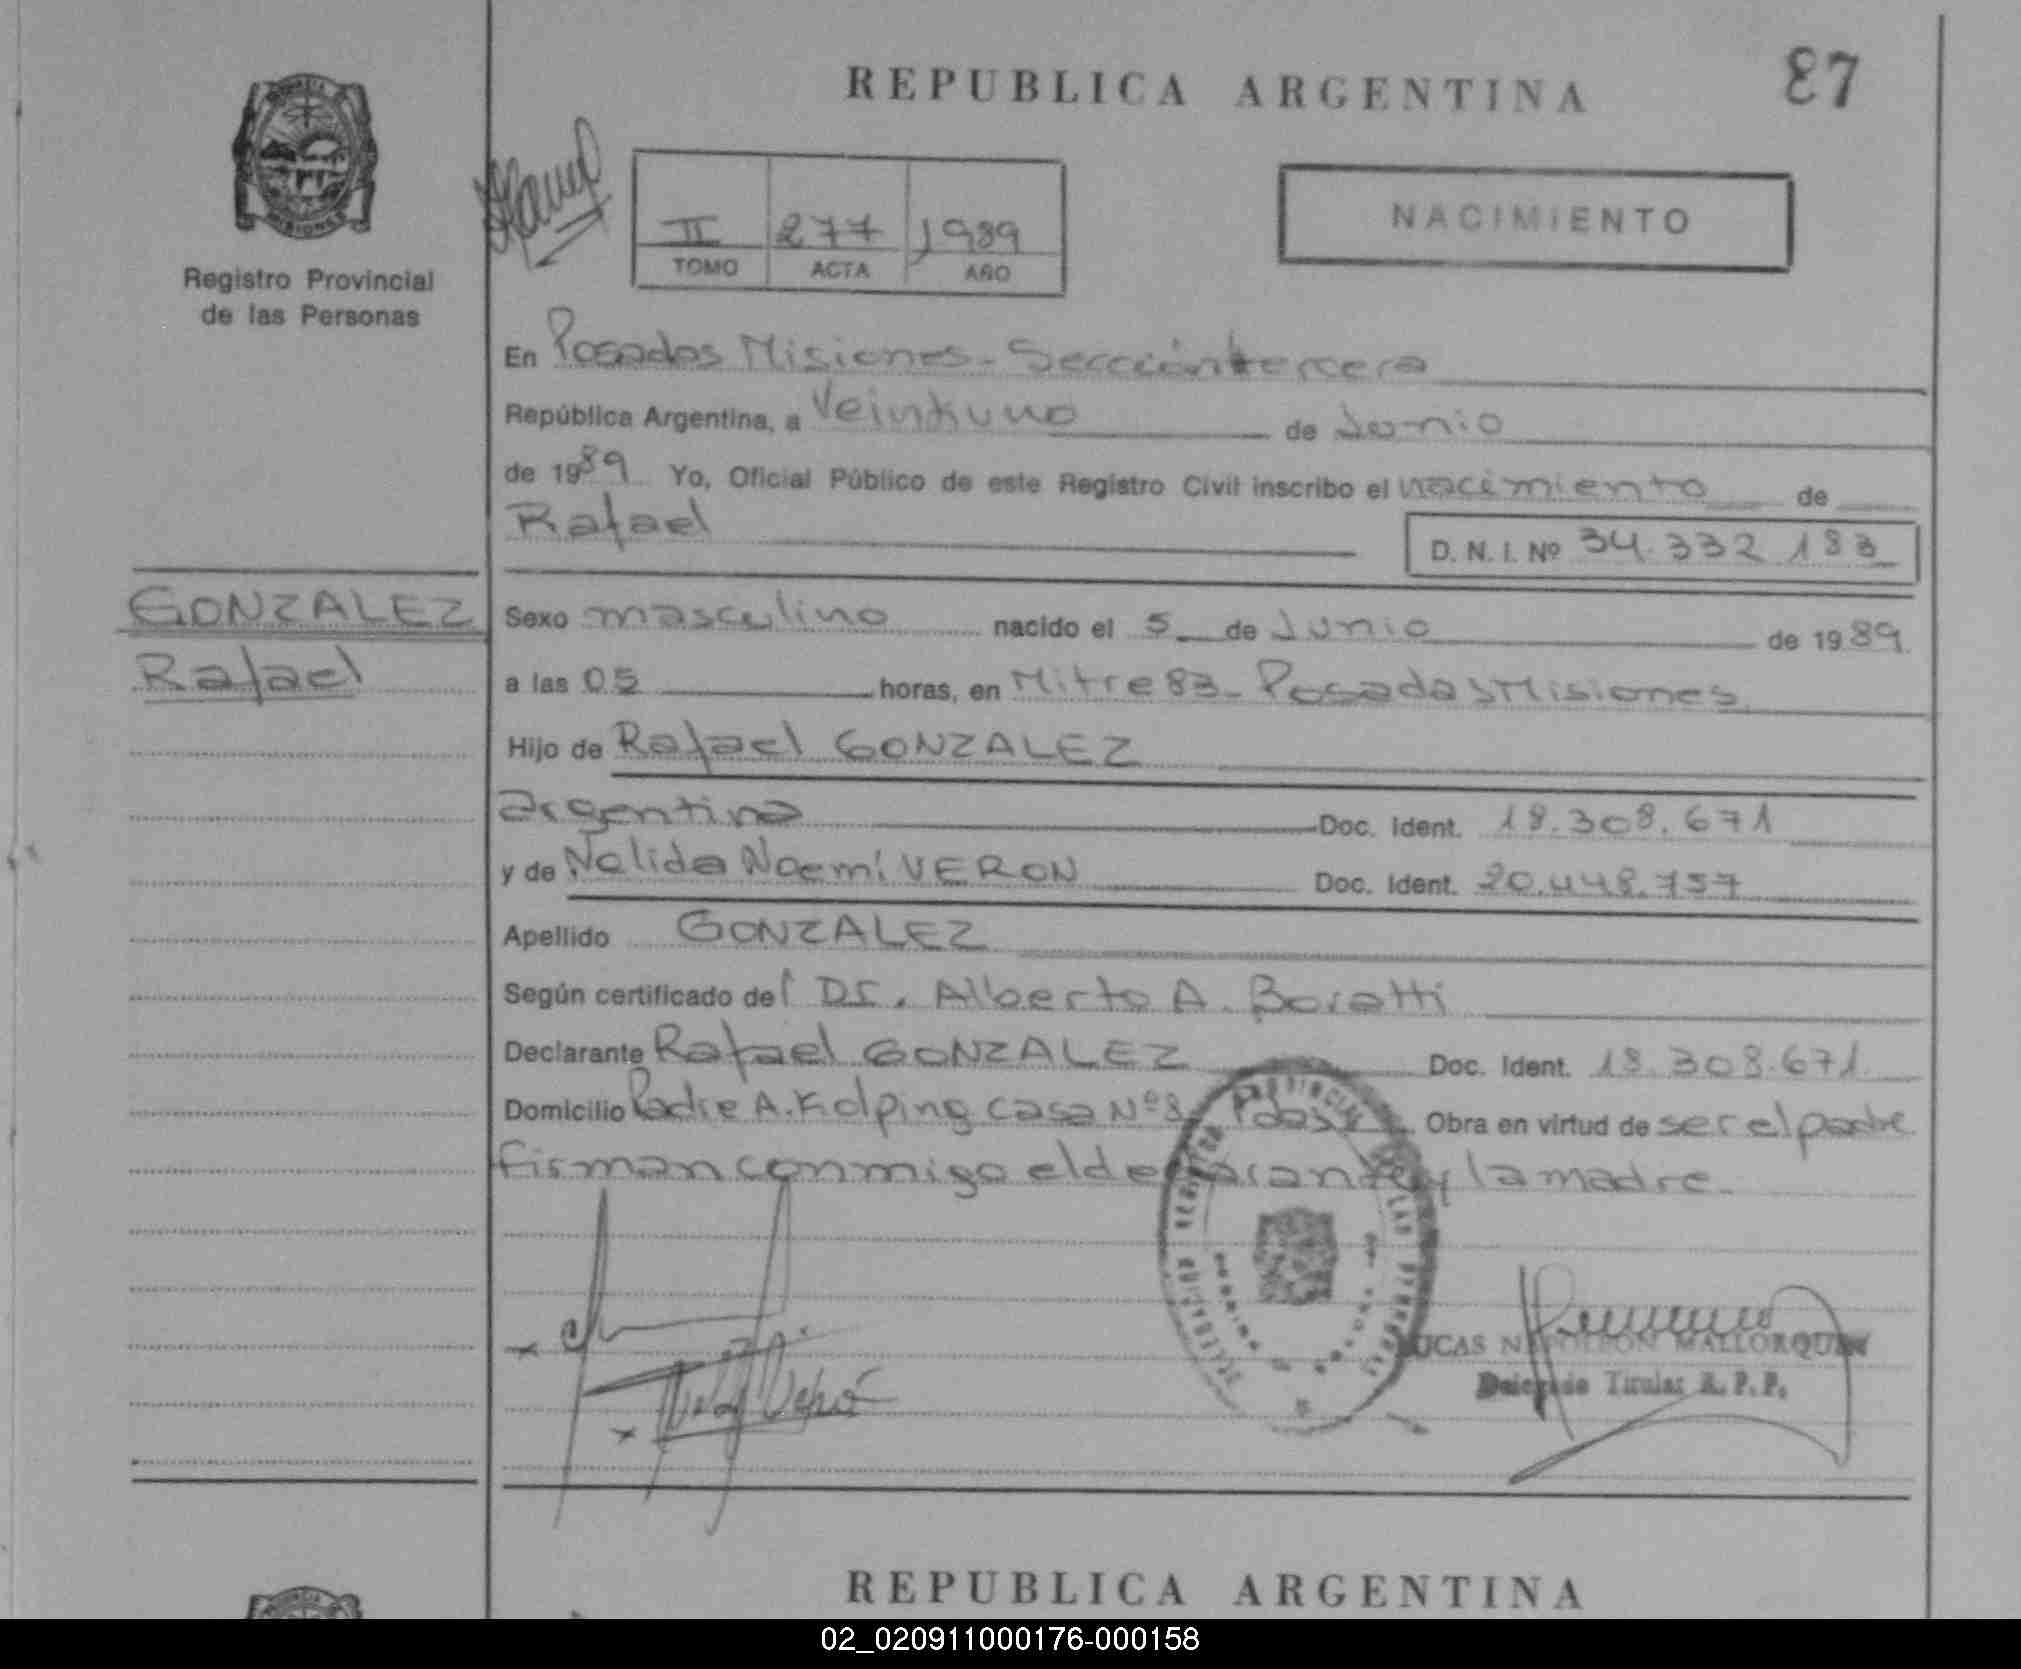 REPUBLICA ARGENTINA
87
MISIONES
Registro Provincial
de las Personas
II 277 1989
TOMO ACTA AÑO
NACIMIENTO
En Posadas Misiones - Sección tercera
República Argentina, a Veintiuno de Junio
de 1989 Yo, Oficial Público de este Registro Civil inscribo el nacimiento de
Rafael D. N. I. Nº 34.332.183
GONZALEZ
Rafael
Sexo masculino nacido el 5 de Junio de 1989
a las 05 horas, en Mitre 83 - Posadas Misiones
Hijo de Rafael GONZALEZ
argentina Doc. Ident. 18.308.671
y de Nelida Noemi VERON Doc. Ident. 20.448.757
Apellido GONZALEZ
Según certificado del Dr. Alberto A. Boratti
Declarante Rafael GONZALEZ Doc. Ident. 18.308.671
Domicilio Padre A. Kolping casa Nº 8 Pdas Obra en virtud de ser el padre
firman conmigo el declarante y la madre.
REGISTRO PROVINCIAL DE LAS PERSONAS
LUCAS NAPOLEON MALLORQUIN
Delegado Titular R. P. P.
REPUBLICA ARGENTINA
02_020911000176-000158